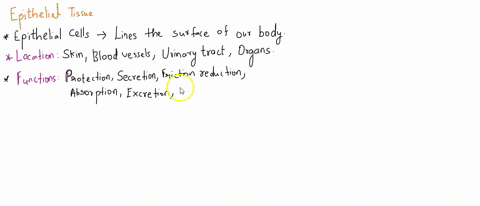 Epithelial Tissue
* Epithelial Cells → Lines the surface of our body.
* Location: Skin, Blood vessels, Urinary tract, Organs.
* Functions: Protection, Secretion, Friction reduction,
Absorption, Excretion,